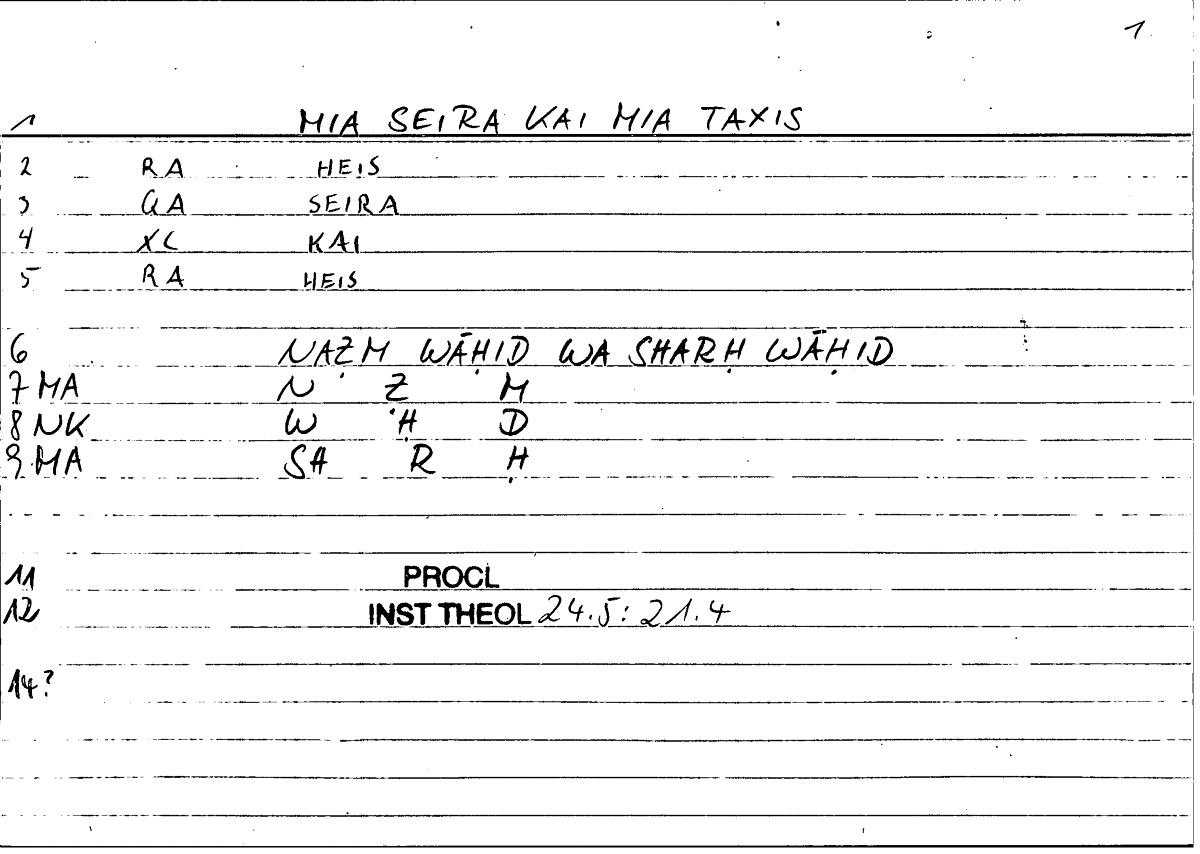 1
1 MIA SEIRA KAI MIA TAXIS
2 RA HEIS
3 QA SEIRA
4 XC KAI
5 RA HEIS
6 NAẒM WĀḤID WA SHARḤ WĀḤID
7 MA N Ẓ M
8 NK W Ḥ D
9 MA SH R Ḥ
11 PROCL
12 INST THEOL 24.5: 21.4
14?